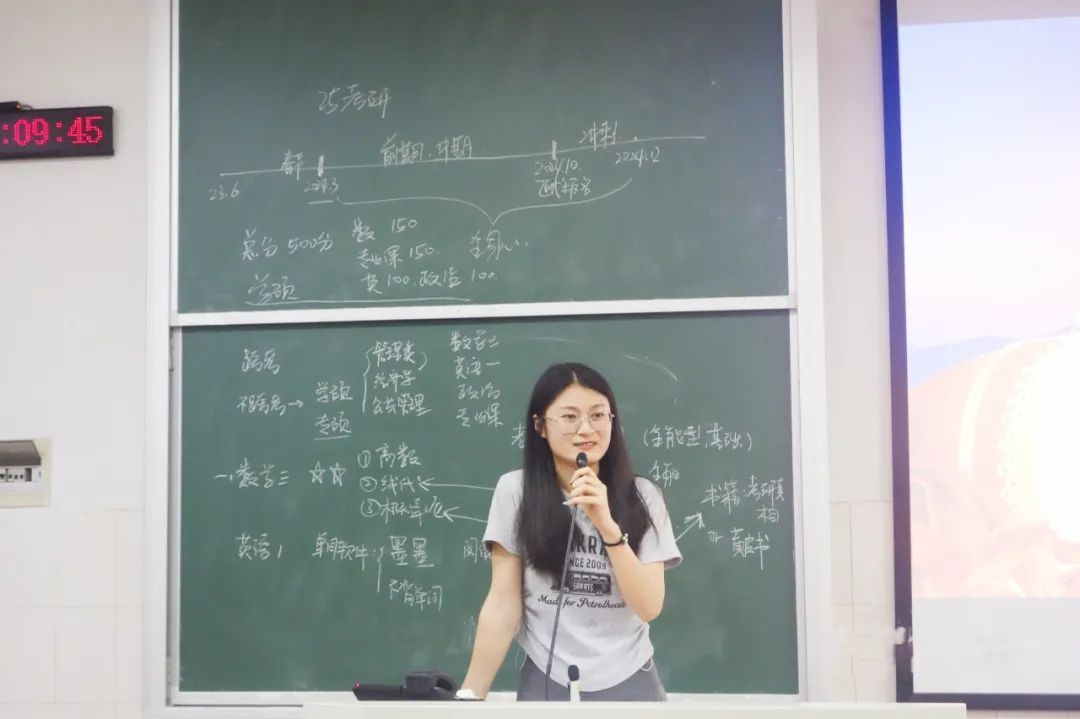 :09:45
25考研
前期.中期
冲刺
23.6
2024.3
2024.10
2024.12
正式报名
总分 500分
数 150
专业课 150.
英 100.政治 100.
学硕
跨考
管理类
经济学
公共管理
数学三
英语一
政治
专业课
不跨考→
学硕
专硕
(全能型基础)
一、数学三 ☆☆
①高数
②线代
③概率论
书籍:考研真相
or 黄皮书
英语1
单词软件:
墨墨
不背单词
SINCE 2009
Made for Petrolhead